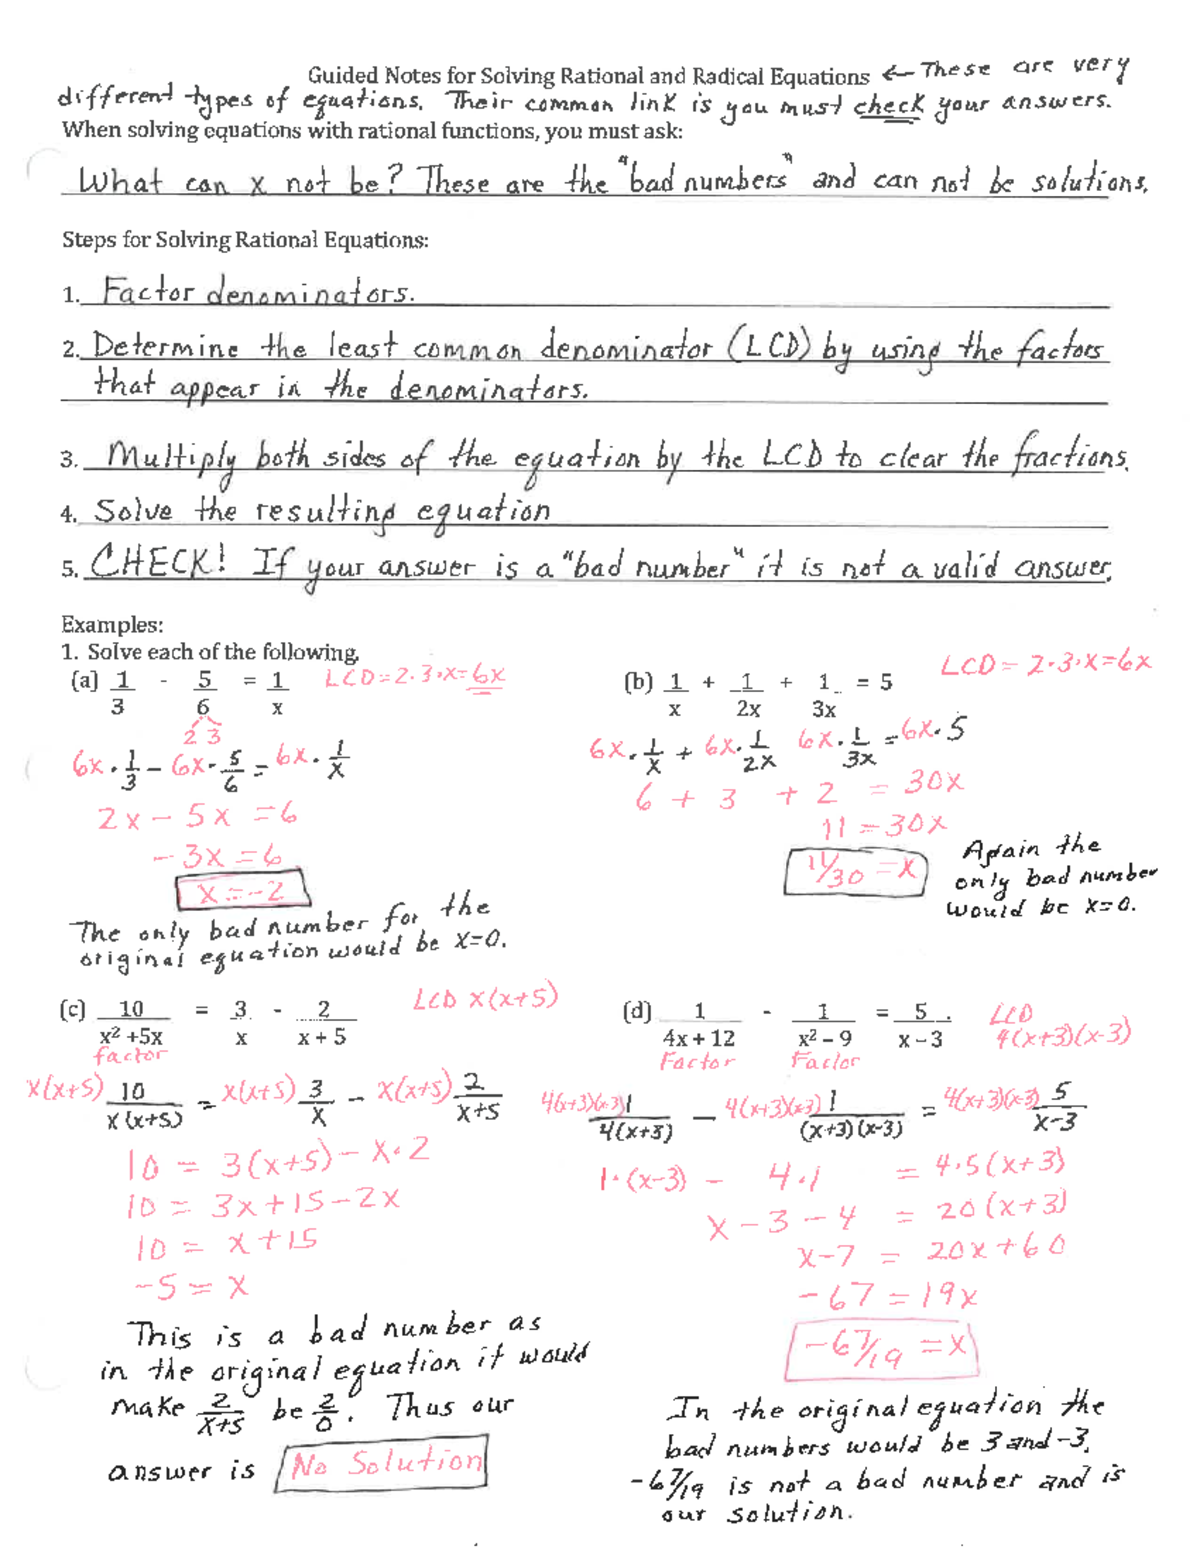 Guided Notes for Solving Rational and Radical Equations ← These are very
different types of equations. Their common link is you must check your answers.
When solving equations with rational functions, you must ask:
What can x not be? These are the "bad numbers" and can not be solutions.
Steps for Solving Rational Equations:
1. Factor denominators.
2. Determine the least common denominator (LCD) by using the factors
that appear in the denominators.
3. Multiply both sides of the equation by the LCD to clear the fractions.
4. Solve the resulting equation
5. CHECK! If your answer is a "bad number" it is not a valid answer.
Examples:
1. Solve each of the following.
(a) 1/3 - 5/6 = 1/x LCD=2·3·x=6x
2 3
6x · 1/3 - 6x · 5/6 = 6x · 1/x
2x - 5x = 6
-3x = 6
x = -2
The only bad number for the
original equation would be x=0.
(b) 1/x + 1/2x + 1/3x = 5 LCD = 2·3·x=6x
6x · 1/x + 6x · 1/2x 6x · 1/3x = 6x · 5
6 + 3 + 2 = 30x
11 = 30x
11/30 = x
Again the
only bad number
would be x=0.
(c) 10/x² +5x = 3/x - 2/x + 5 LCD x(x+5)
factor
x(x+5) 10/x(x+5) = x(x+5) 3/x - x(x+5) 2/x+5
10 = 3(x+5) - x·2
10 = 3x+15-2x
10 = x+15
-5 = x
This is a bad number as
in the original equation it would
make 2/x+5 be 2/0. Thus our
answer is No Solution
(d) 1/4x + 12 - 1/x² – 9 = 5/x – 3 . LCD
4(x+3)(x-3)
Factor Factor
4(x+3)(x-3) 1/4(x+3) - 4(x+3)(x-3) 1/(x+3)(x-3) = 4(x+3)(x-3) 5/x-3
1·(x-3) - 4·1 = 4·5(x+3)
x-3-4 = 20(x+3)
x-7 = 20x+60
-67 = 19x
-67/19 = x
In the original equation the
bad numbers would be 3 and -3.
-67/19 is not a bad number and is
our solution.